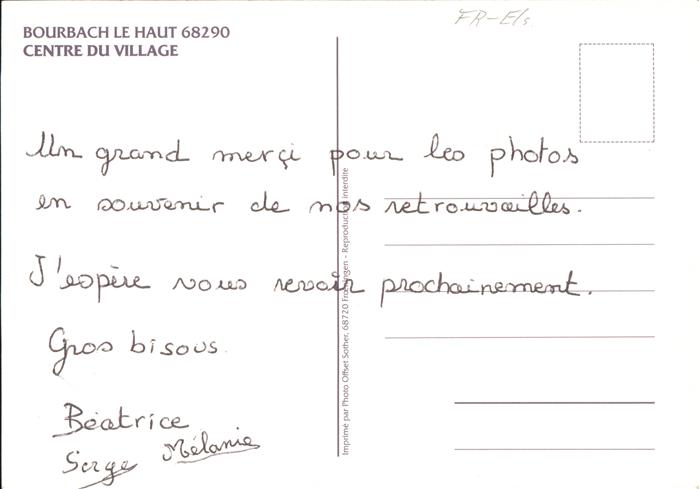 BOURBACH LE HAUT 68290
CENTRE DU VILLAGE
FR-Els
Un grand merçi pour les photos
en souvenir de nos retrouvailles.
J'espère vous revoir prochainement.
Gros bisous.
Béatrice
Mélanie
Serge
Imprimé par Photo Offset Sother, 68720 - Reproduction interdite